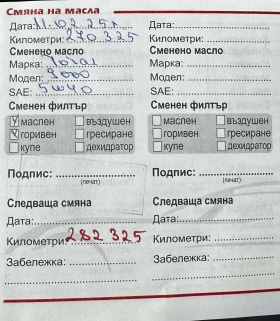 Смяна на масла
Дата: 11.02.25г.
Километри: 270 325
Сменено масло
Марка: Total
Модел: 9000
SAE: 5w40
Сменен филтър
маслен въздушен
горивен гресиране
купе дехидратор
Подпис:
(печат)
Следваща смяна
Дата:
Километри: 282 325
Забележка:
Дата:
Километри:
Сменено масло
Марка:
Модел:
SAE:
Сменен филтър
маслен въздушен
горивен гресиране
купе дехидратор
Подпис:
(печат)
Следваща смяна
Дата:
Километри:
Забележка: